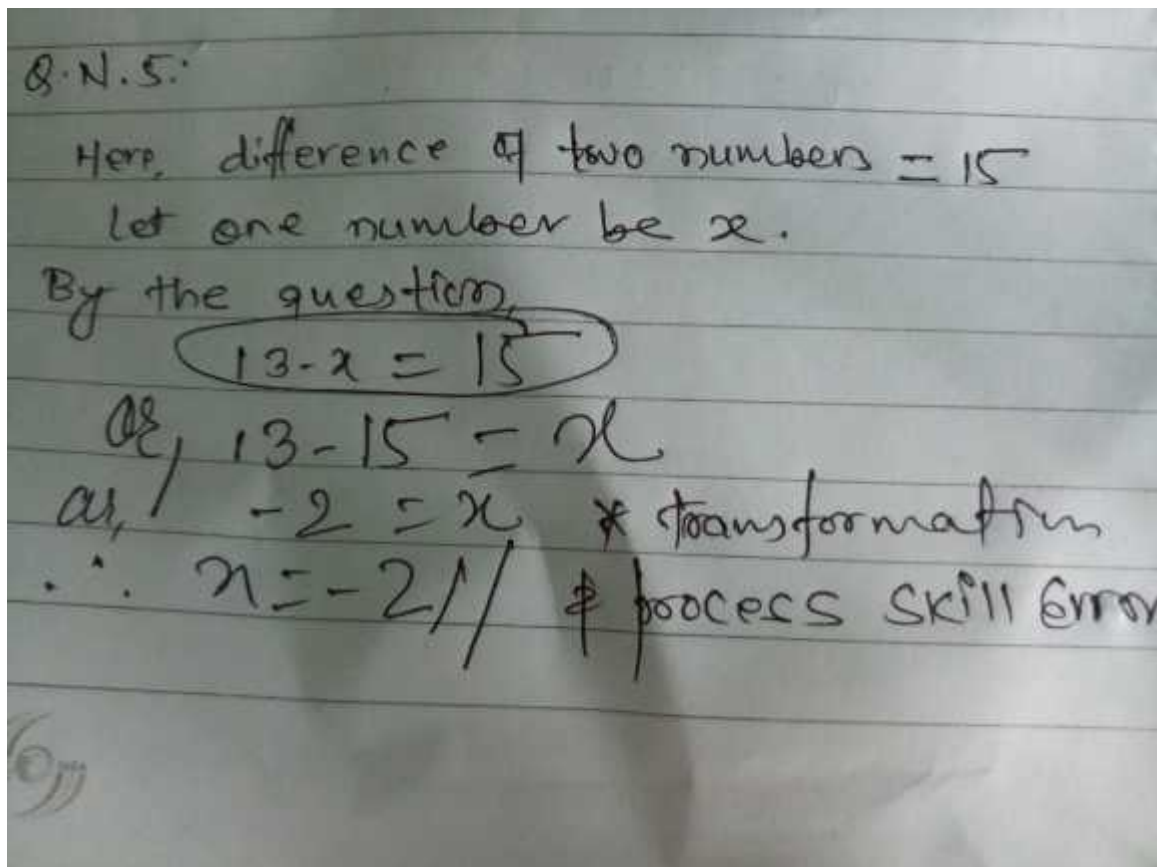 Q.N.5:
Here, difference of two numbers = 15
let one number be x.
By the question,
13-x = 15
or, 13-15 = x
or, -2 = x * transformation
∴ x = -2// & process skill Error